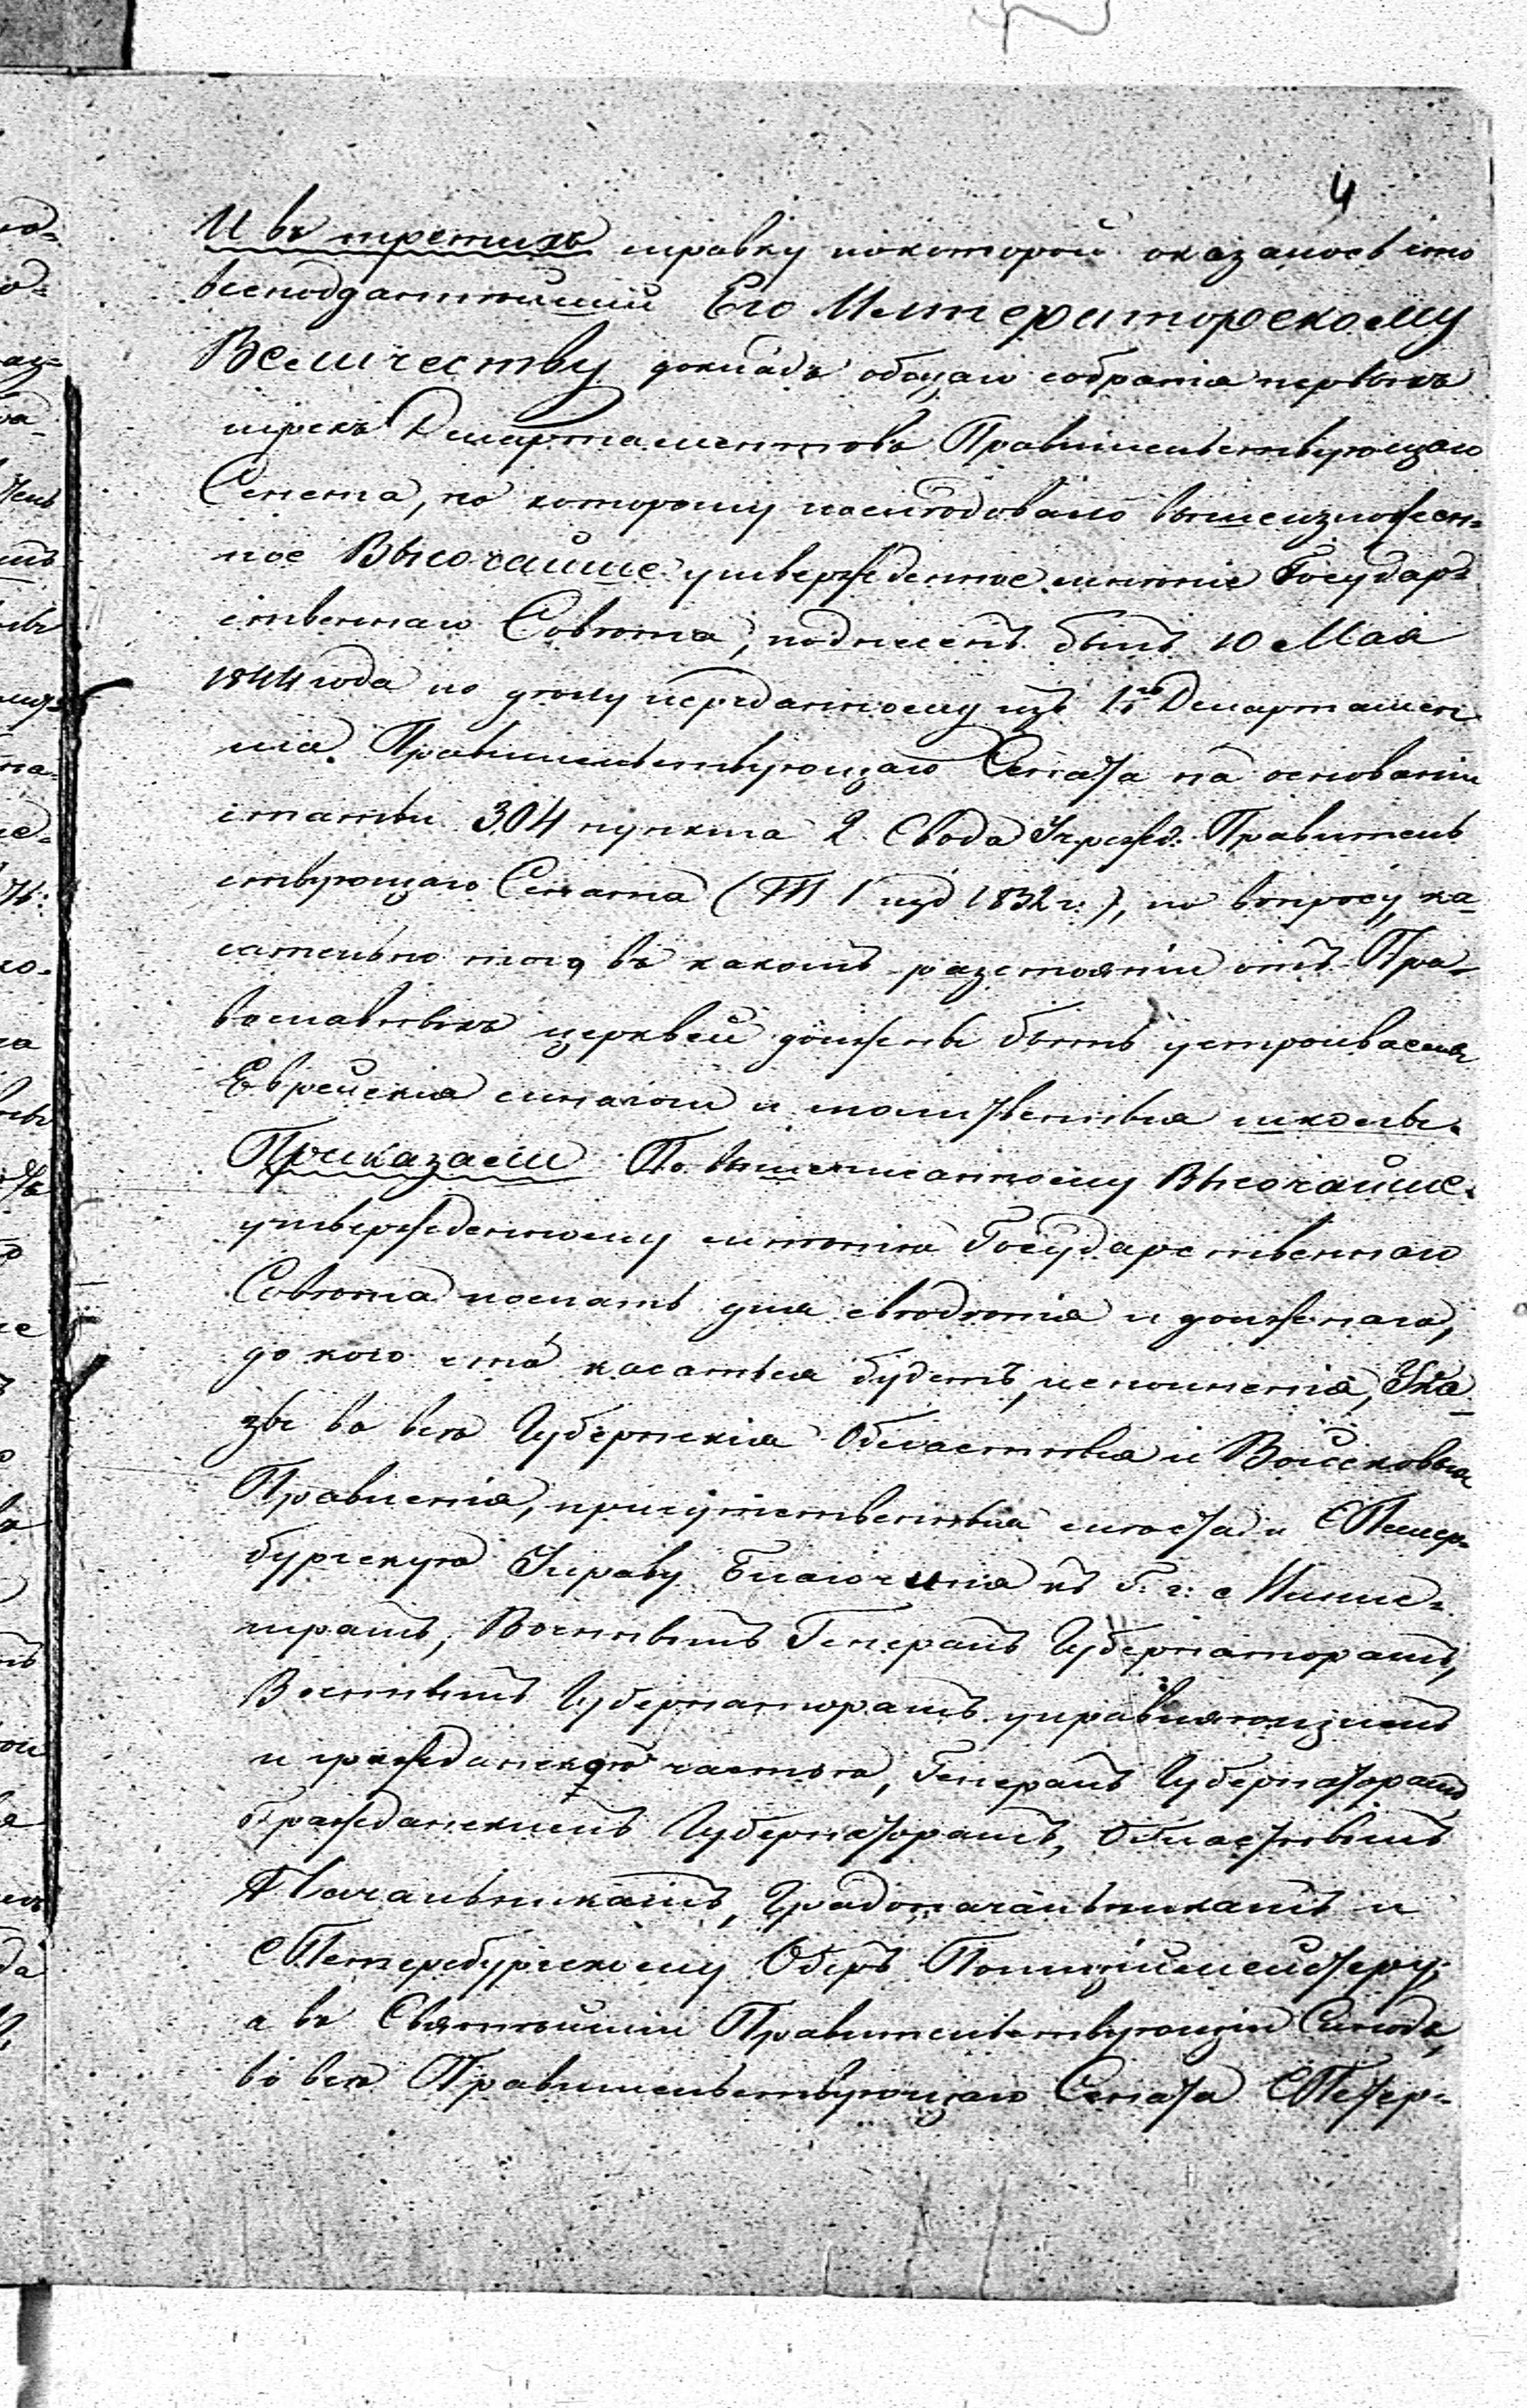 4
И въ третьихъ справку покоторой оказалось что
всеподданнѣйшій Его Императорскому
Величеству докладъ общаго собранія первыхъ
трехъ Департаментовъ Правительствующаго
Сената, по которому послѣдовало вышеизложен-
ное Высочайше утвержденное мнѣніе Государ-
ственнаго Совѣта, поднесенъ былъ 10 Мая
1844 года по дѣлу переданному изъ 1го Департамен-
та Правительствующаго Сената на основаніи
статьи 304 пункта 2 Свода Учрежд: Правитель
ствующаго Сената (Т. 1 изд 1832 г.), по вопросу, ка-
сательно того, въ какомъ разстояніи отъ Пра-
вославныхъ церквей должны быть устроиваемы
Еврейскія синагоги и молитвенныя школы.
Приказали По вышеписанному Высочайше
утвержденному мнѣнію Государственнаго
Совѣта послать для свѣдѣнія и должнаго,
до кого что касаться будетъ, исполненія, Ука-
зы во всѣ Губернскія Областныя и Войсковыя
Правленія, присутственныя мѣста и СПетер-
бургскую Управу Благочинія къ Г. г: Мини-
страмъ, Военнымъ Генералъ Губернаторамъ,
Военнымъ Губернаторамъ управляющимъ
и гражданскою частью, Генералъ Губернаторамъ,
Гражданскимъ Губернаторамъ, Областнымъ
Начальникамъ, Градоначальникамъ и
СПетербургскому Оберъ Полиціймейстеру;
а въ Святѣйшій Правительствующій Синодъ,
во всѣ Правительствующаго Сената СПетер-